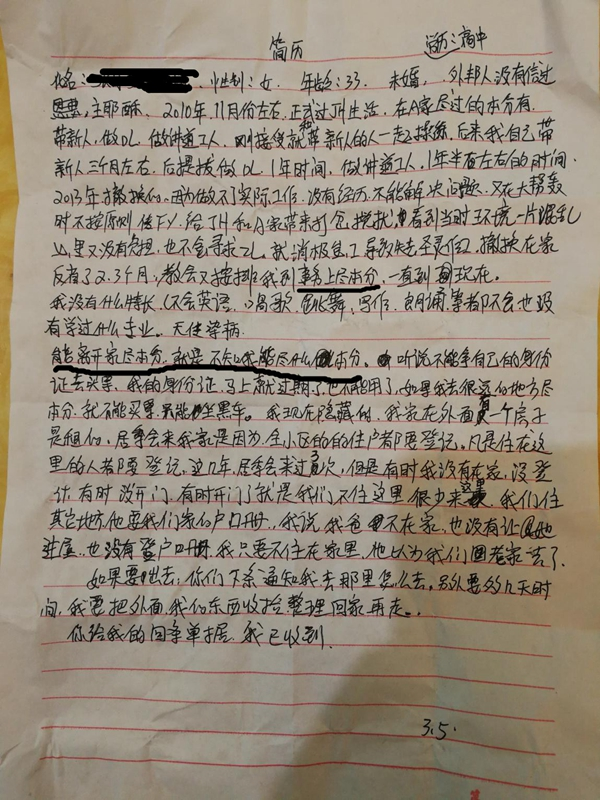 简历
学历：高中
姓名： 性别：女 年龄：33 未婚，外邦人没有信过
恩典，主耶稣。2010年，11月份左右，正式过JH生活，在A家尽过的本分有
带新人，做DL，做讲道工人，刚接受就和带新人的人一起操练，后来我自己带
新人三个月左右，后提拔做DL，1年时间，做讲道工人，1年半左右的时间。
2013年撤换的，因为做不了实际工作，没有经历，不能解决问题，又在大帮轰
时不按原则传FY，给JH和A家带来打岔搅扰，看到当时环境一片混乱
心里又没有负担，也不会寻求ZL，就消极怠工导致失去圣灵作工，撤换在家
反省了2.3个月，教会又安排我到事务上尽本分，一直到现在。
我没有什么特长，（不会英语，唱歌，跳舞，写作，朗诵等都不会也没
有学过什么专业。无传染病。
能离开家尽本分，就是不知我能尽什么本分。听说不能拿自己的身份
证去买票，我的身份证，马上就过期了，也不能用了，如果我去很远的地方尽
本分，就不能买票，只能坐黑车。我现在隐藏的，我家在外面有一个房子
是租的，居委会来我家是因为，全小区的的住户都要登记，凡是住在这
里的人都要登记，这几年，居委会来过3次，但是有时我没有在家，没登
记有时没开门，有时开门了就是我们不住这里很少来这里，我们住
其它地方他要我们家的户口册，我说，我爸不在家，也没有让他
进屋，也没有登户口册，我只要不住在家里，他以为我们回老家去了。
如果要出去，你们下条通知我去那里怎么去，另外要约几天时
间，我要把外面，我们东西收拾，整理回家再走。
你给我的回条单据，我已收到
3.5.